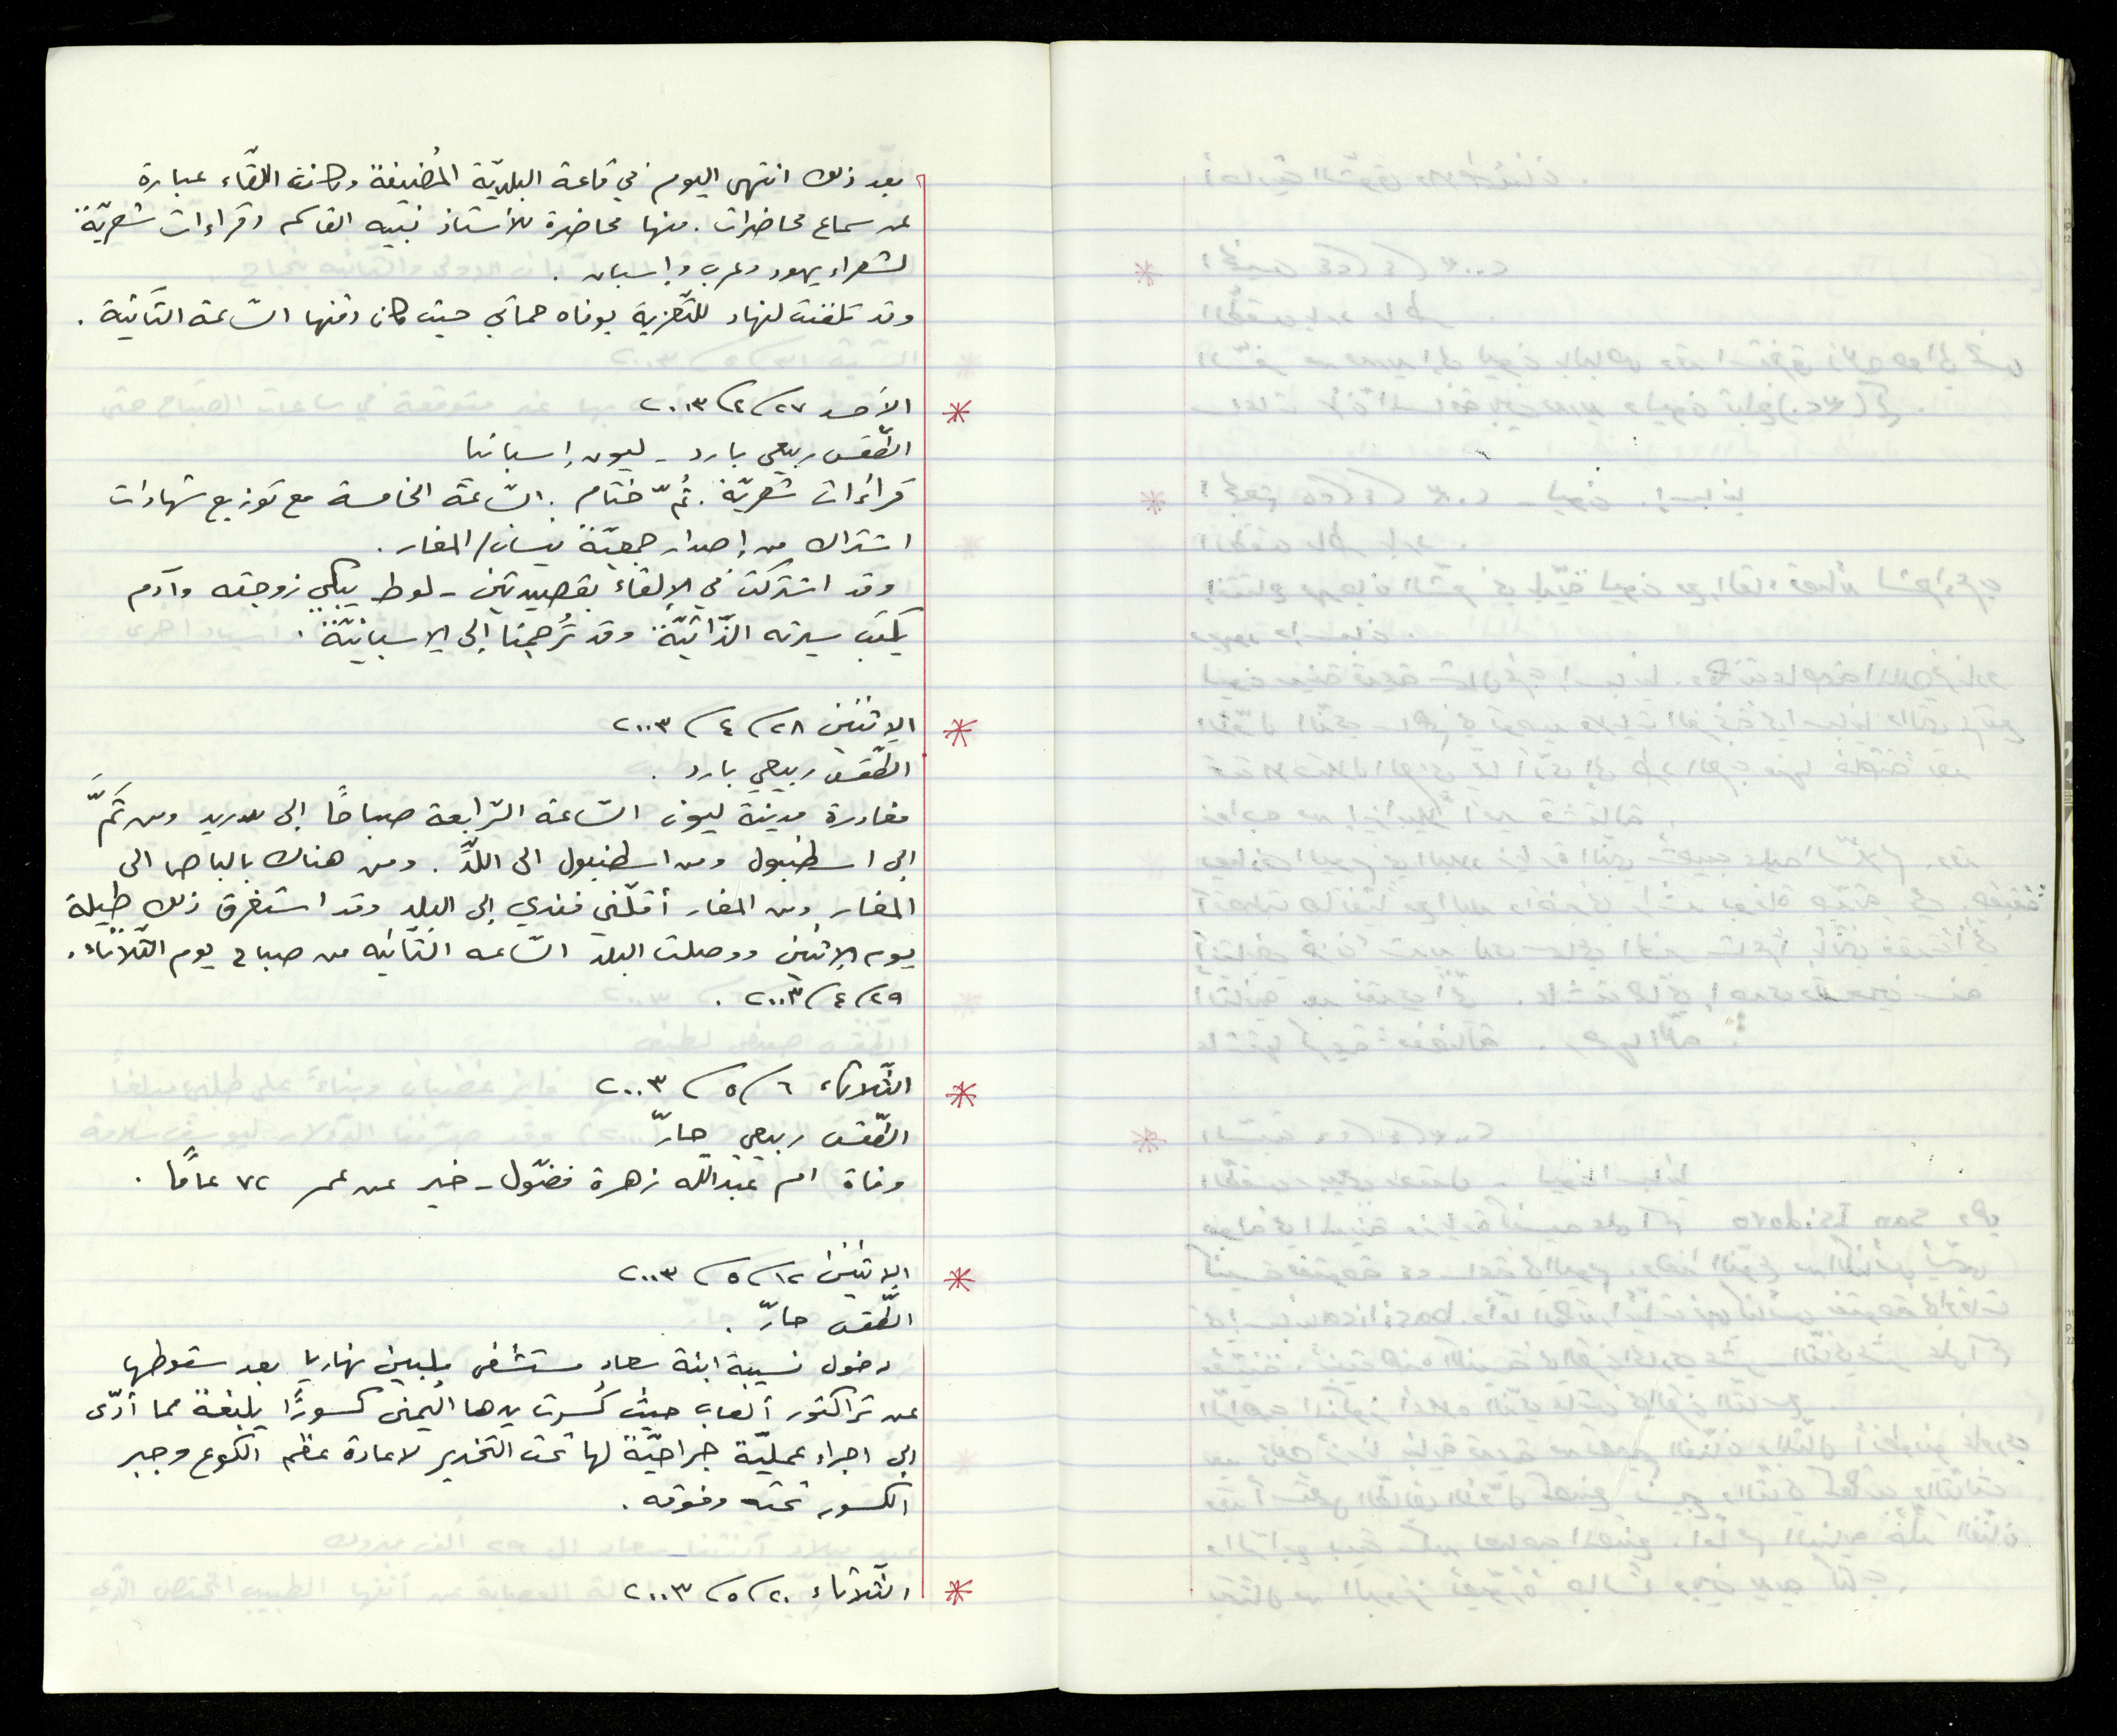 بعد ذلك انتهى اليوم في قاعة البلديّة المُضيفة وكانت اللقاء عبارة
عن سماع محاضرات . منها محاضرة للأستاذ نبيه القاسم وقراءات شعريّة
لشعراء يهود وعرب وإسبان .
وقد تلفنت لنهاد للتّعزية بوفاه حماتي حيث كان دفنها السّاعة الثّانية .
* الأحد ٢٧/٤/٢٠٠٣
الطّقس ربيعي بارد - ليون إسبانيا
قراءات شعريّة . ثُمّ ختام . السّاعة الخامسة مع توزيع شهادات
اشتراك من إصدار جمعيّة نيسان/المغار .
وقد اشتركت في الإلقاء بقصيدتين - لوط يبكي زوجته وآدم
يكتب سيرته الذّاتيّة وقد تُرجمتا إلى الاسبانيّة .
* الإثنين ٢٨/٤/٢٠٠٣
الطّقس ربيعي بارد .
مغادرة مدينة ليون السّاعة الرّابعة صباحًا الى مدريد ومن ثَمَّ
إلى اسطنبول ومن اسطنبول الى اللّدّ . ومن هناك بالباص الى
المغار ومن المغار أقلّني فندي إلى البلد وقد استغرق ذلك طيلة
يوم الإثنين ووصلت البلد السّاعه الثّانيه من صباح يوم الثّلاثاء .
٢٩/٤/٢٠٠٣ .
* الثّلاثاء ٦/٥/٢٠٠٣
الطّقس ربيعي حارّ
وفاة ام عبدالله زهرة فضّول - خير عن عمر ٧٢ عامًا .
* الإثنين ١٢/٥/٢٠٠٣
الطّقس حارّ .
دخول نسيبة ابنة سعاد مستشفى نهاريا بعد سقوطها
عن تراكتور ألعاب حيثُ كُسرت يدها اليمنى كسورًا بليغة مما أدّى
إلى اجراء عمليّة جراحيّة لها تحت التخدير لاعادة عظم الكوع وجبر
الكسور تحته وفوقه .
* الثّلاثاء ٢٠/٥/٢٠٠٣